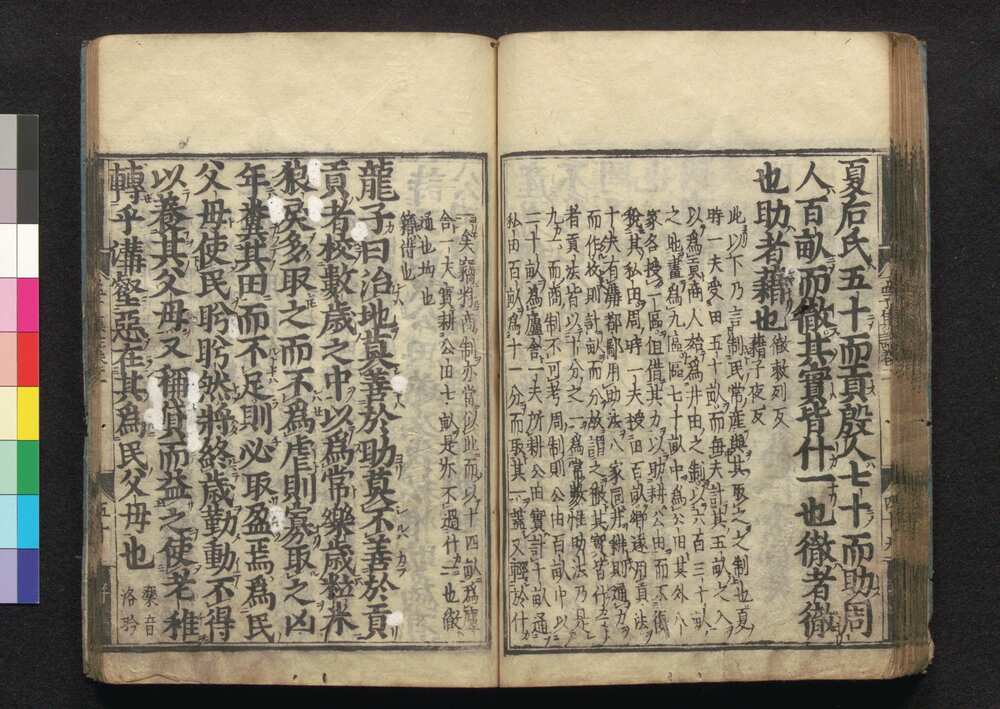 夏后氏五十而貢殷人七十而助周
人百畝而徹其實皆什一也徹者徹
也助者藉也徹敕列反
藉子夜反
此以下乃言制民常產與其取之之制也夏
時一夫受田五十畝而每夫計其五畝之入
以為貢商人始為井田之制以六百三十畝
之地畫為九區區七十畝中為公田其外八
家各授一區但借其力以助耕公田而不復
稅其私田周時一夫授田百畝鄉遂用貢法
十夫有溝都鄙用助法八家同井耕則通力
而作收則計畝而分故謂之徹其實皆什一
者貢法固以十分之一為常數惟助法乃是
九一而商制不可考周制則公田百畝中以
二十畝為廬舍一夫所耕公田實計十畝通
私田百畝為十一分而取其一蓋又輕於什
一矣竊料商制亦當似此而以十四畝為廬
舍一夫實耕公田七畝是亦不過什一也徹
通也均也
藉借也
龍子曰治地莫善於助莫不善於貢
貢者校數歲之中以為常樂歲粒米
狼戾多取之而不為虐則寡取之凶
年糞其田而不足則必取盈焉為民
父母使民盻盻然將終歲勤動不得
以養其父母又稱貸而益之使老稚
轉乎溝壑惡在其為民父母也樂音
洛盻